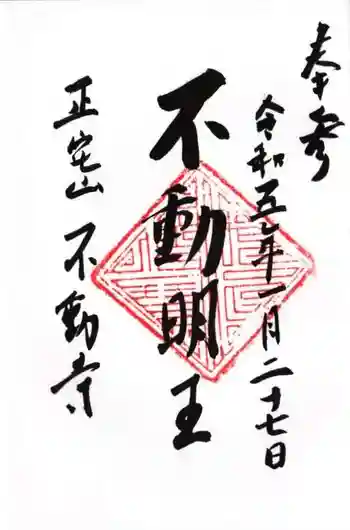 奉参
令和五年一月二十七日
不動明王
正宝山 不動寺